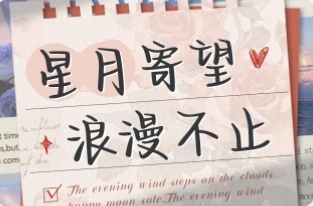 星月寄望
浪漫不止
The evening wind steps on the clouds
moon sale. The evening wind